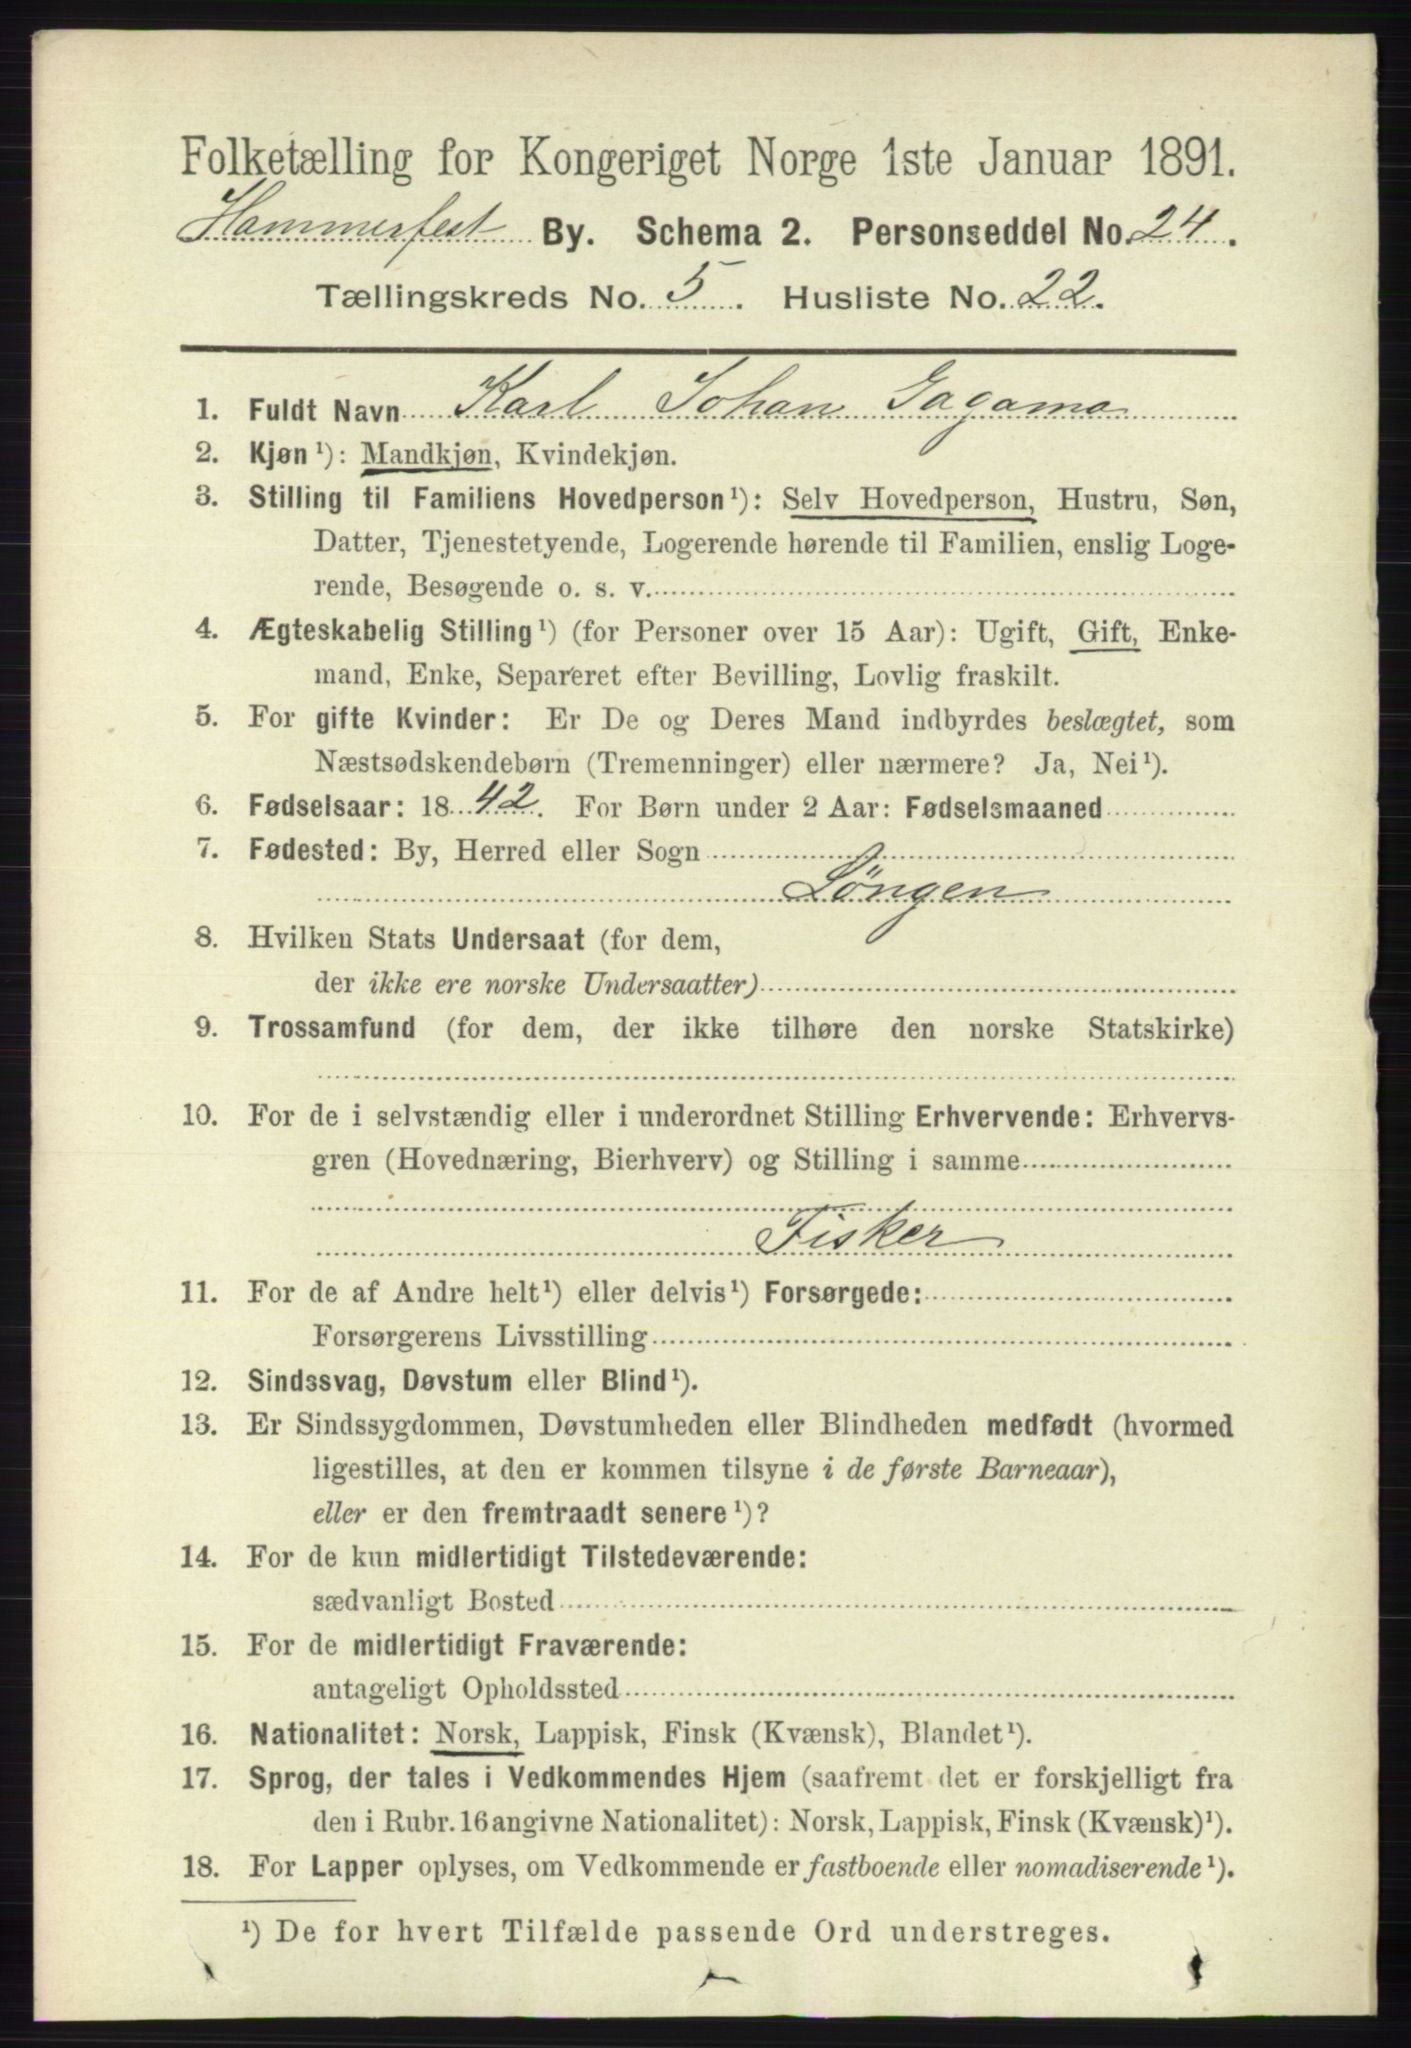 Folketælling for Kongeriget Norge 1ste Januar 1891.
Hammerfest By. Schema 2. Personseddel No. 24.
Tællingskreds No. 5. Husliste No. 22.
1. Fuldt Navn Karl Johan Gagama
2. Kjøn¹): Mandkjøn, Kvindekjøn.
3. Stilling til Familiens Hovedperson¹): Selv Hovedperson, Hustru, Søn,
Datter, Tjenestetyende, Logerende hørende til Familien, enslig Loge-
rende, Besøgende o. s. v.
4. Ægteskabelig Stilling¹) (for Personer over 15 Aar): Ugift, Gift, Enke-
mand, Enke, Separeret efter Bevilling, Lovlig fraskilt.
5. For gifte Kvinder: Er De og Deres Mand indbyrdes beslægtet, som
Næstsødskendebørn (Tremenninger) eller nærmere? Ja, Nei¹).
6. Fødselsaar: 1842. For Børn under 2 Aar: Fødselsmaaned
7. Fødested: By, Herred eller Sogn
Löngen
8. Hvilken Stats Undersaat (for dem,
der ikke ere norske Undersaatter)
9. Trossamfund (for dem, der ikke tilhøre den norske Statskirke)
10. For de i selvstændig eller i underordnet Stilling Erhvervende: Erhvervs-
gren (Hovednæring, Bierhverv) og Stilling i samme
Fisker
11. For de af Andre helt¹) eller delvis¹) Forsørgede:
Forsørgerens Livsstilling
12. Sindssvag, Døvstum eller Blind¹).
13. Er Sindssygdommen, Døvstumheden eller Blindheden medfødt (hvormed
ligestilles, at den er kommen tilsyne i de første Barneaar),
eller er den fremtraadt senere¹)?
14. For de kun midlertidigt Tilstedeværende:
sædvanligt Bosted
15. For de midlertidigt Fraværende:
antageligt Opholdssted
16. Nationalitet: Norsk, Lappisk, Finsk (Kvænsk), Blandet¹).
17. Sprog, der tales i Vedkommendes Hjem (saafremt det er forskjelligt fra
den i Rubr. 16 angivne Nationalitet): Norsk, Lappisk, Finsk (Kvænsk)¹).
18. For Lapper oplyses, om Vedkommende er fastboende eller nomadiserende¹).
¹) De for hvert Tilfælde passende Ord understreges.